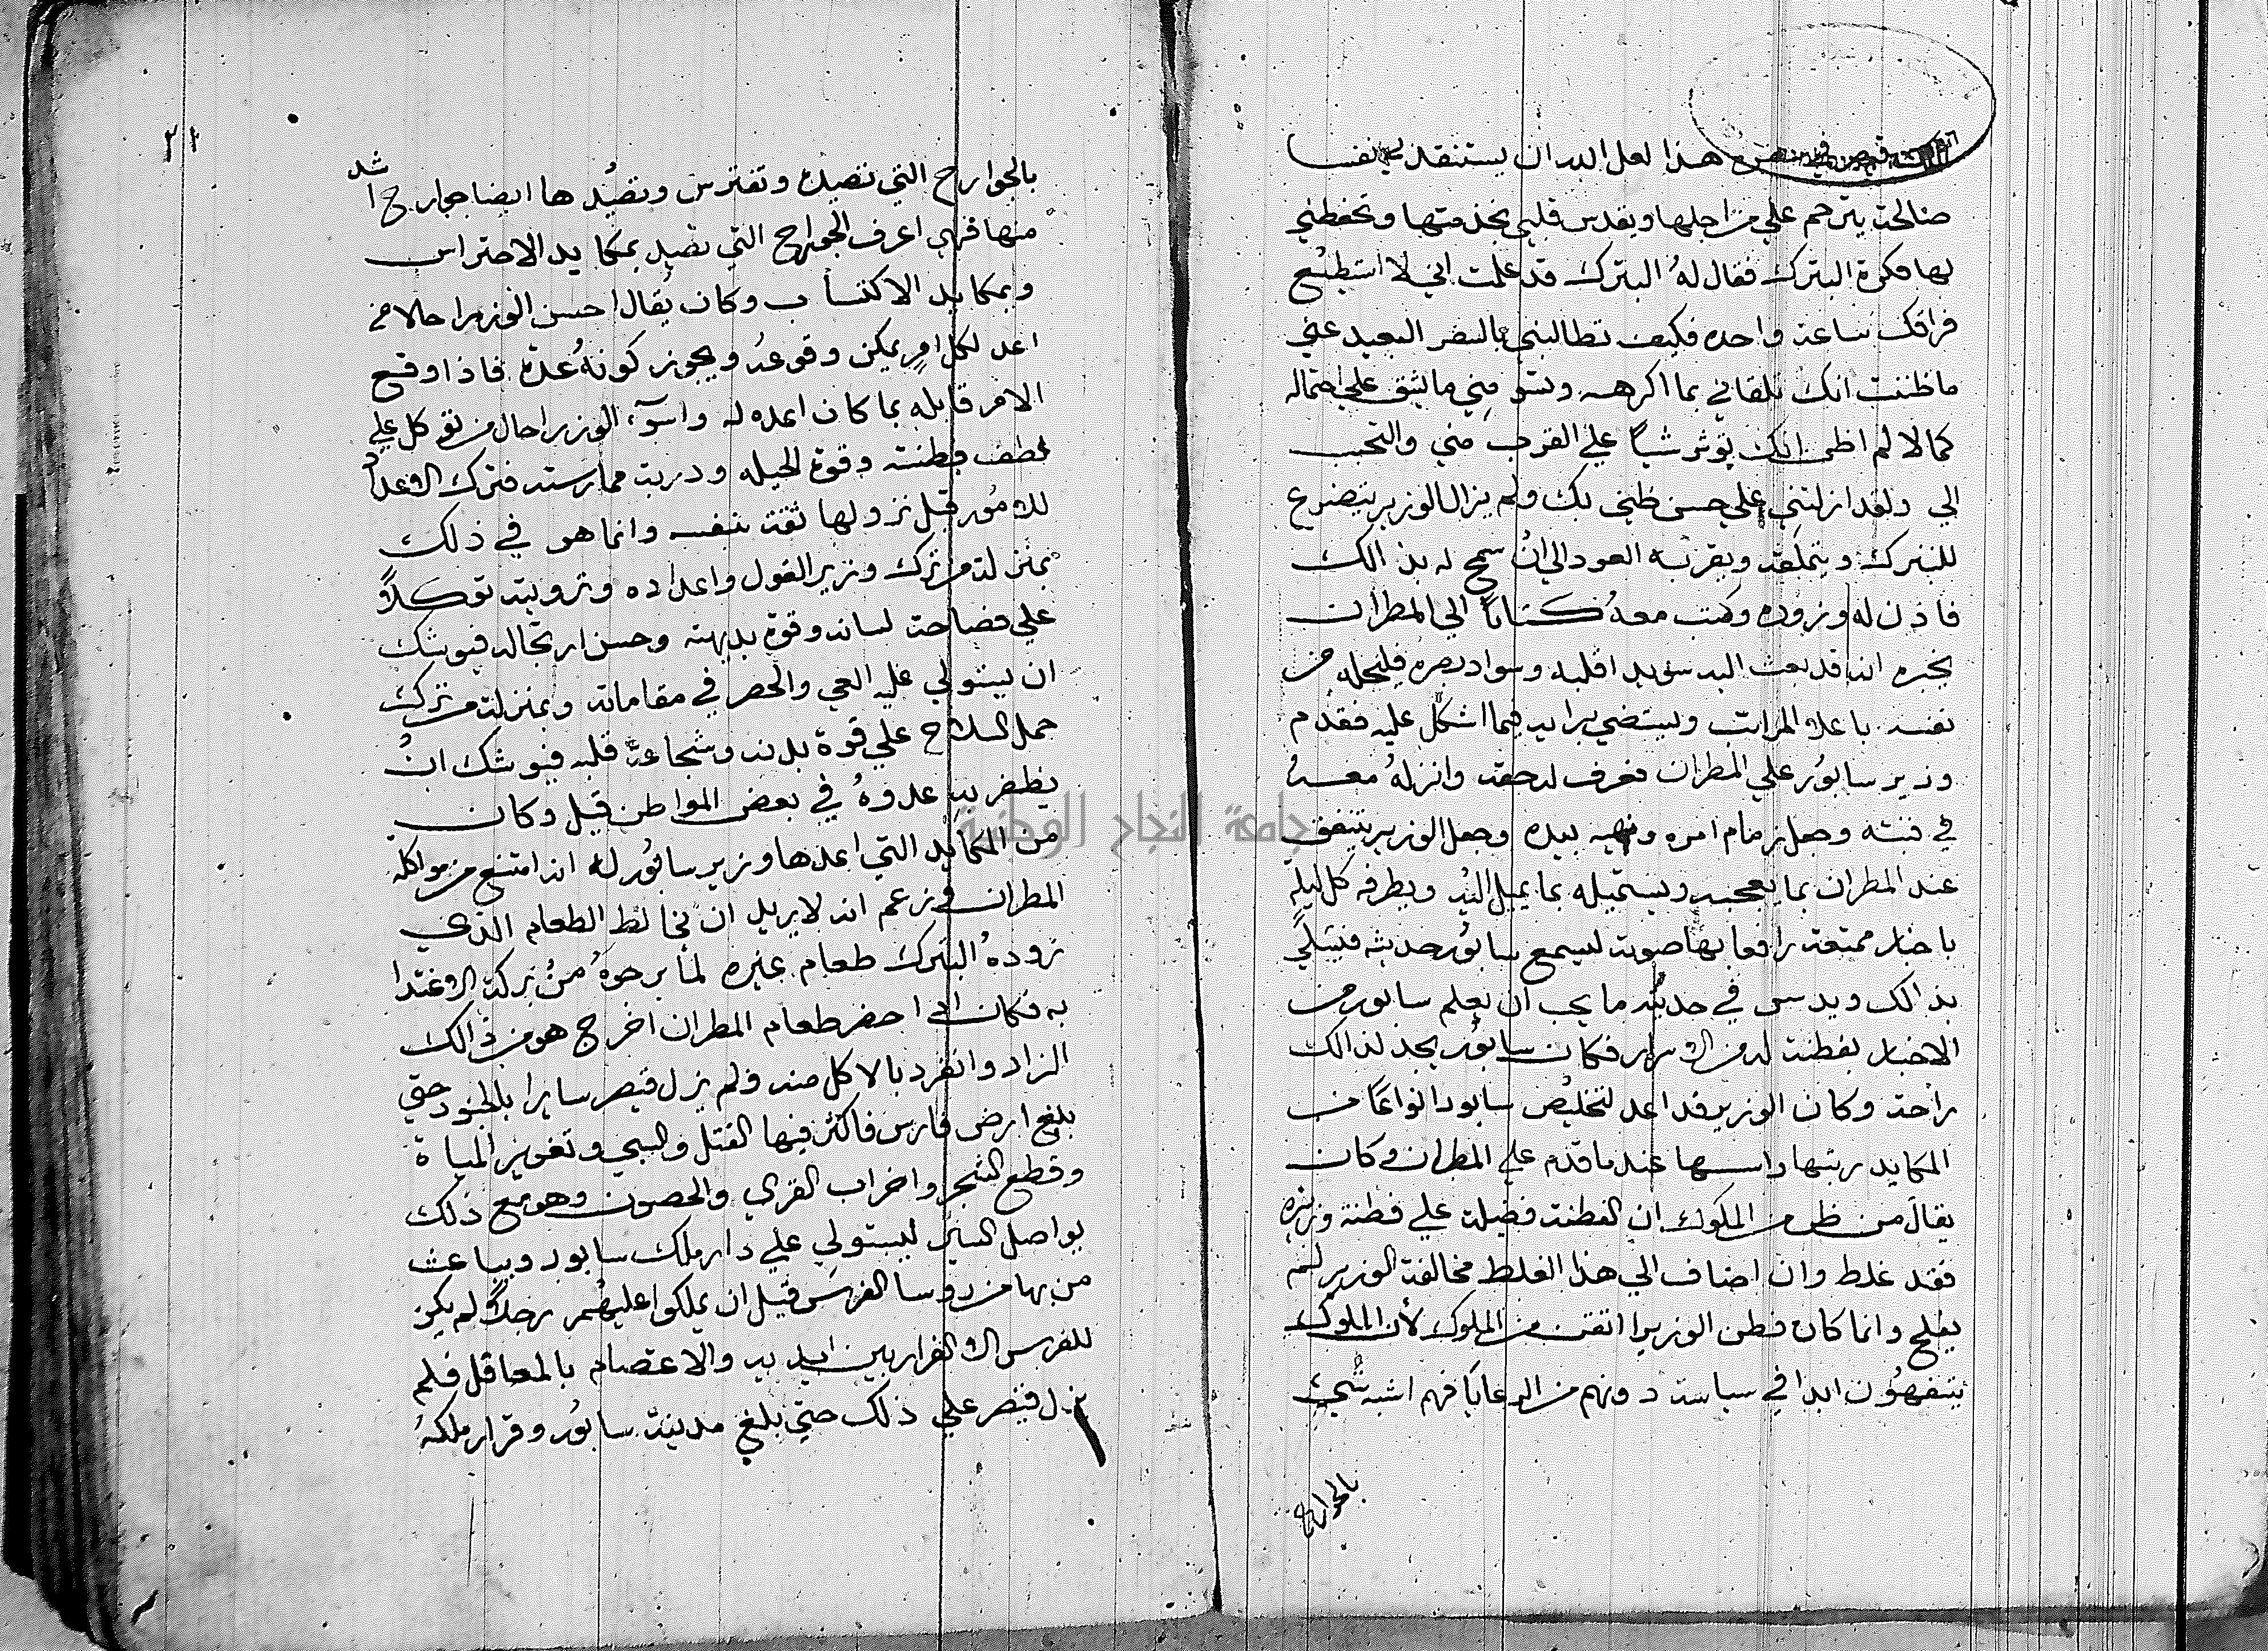 قيصر في سفره هذا لعل الله ان يستنقد بي نفسا
صالحة يترحم علي من اجلها ويقدس قلبي بخدمتها وتحفظني
لها فكره البترك فقال لهُ البترك قد علمت اني لا استطيع
فراقك ساعة واحده فكيف تطالبني بالسفر البعيد عني
ما ظننت انك تلقاني بما اكرهه وتسومني ما يشق علي احتماله
كما لا لم اظن انك توثر شياً علي القرب مني والتحبب
الي ولقد ازلتني علي حسن ظني بك ولم يزال الوزير يتضرع
للبترك ويتملقه ويقربه العود الي انُ سمح له بذالك
فاذن له وزوده وكتب معهُ كتاباً الي المطران
يخبره انه قد بعث اليه سويدا قلبه وسواد بصره فليحله من
نفسه باعلا المراتب وليستضي برايه فيما اشكل عليه فقدم
وزير سابُور علي المطران فعرف له حقه وانزلهُ معهُ
في قبته وجعل زمام امره ونهيه بيده وجعل الوزير يتنفق
عند المطران بما يعجبه ويستميله بما يميل اليه ويطرفه كل ليلة
باخبار ممتعة رافعا بها صوته ليسمع سابُور حديثه فيتسلي
بذالك ويدس في حديثه ما يحب ان يعلم سابور من
الاخبار بفطنة له من الاسرار فكان سابُور يجد لذالك
راحة وكان الوزير قد اعد لتخليص سابور انواعًا من
المكايد رتبها واسسها عند ما قدم علي المطران وكان
يقال من ظن من الملوك ان لفطنته فضيلة علي فطنة وزيره
فقد غلط وان اضاف الي هذا الغلط مخالفة الوزير لم
يفلح وانما كان فطن الوزيرا اتقن من الملوك لأن الملوك
يتفقهُون ابدا في سياسة دونهم من الرعايا فهم اشبه شيء
بالجوارح
٢١
بالجوارح التي تصيد وتفترس وتصيُدها ايضا جوارح اشد
منها فهي اعرف الجوارح التي تصيد بمكايد الاحتراس
وبمكايد الاكتساب وكان يُقال احسن الوزرا حالا من
اعد لكل امرٍ يمكن وقوعهُ ويجوز كونهُ عُدة فاذا وقع
الامر قابله بما كان اعده له واسوّء الوزرا حال من توكل علي
لطف فطنته وقوة الحيله ودربة ممارسته فترك الاعداد
للامُور قبل نزولها ثقة بنفسه وانما هو في ذلك
بمنزلة من ترك وزير القول واعداده وترويته توكلاً
علي فصاحة لسانه وقوة بديهته وحسن ارتجاله فيوشك
ان يستولي عليه العي والحصر في مقاماته وبمنزلة من ترك
حمل السلاح علي قوة بدنه وشجاعة قلبه فيوشك انُ
يظفر به عدوهُ في بعض المواطن قيل وكان
من المكايد التي اعدها وزير سابُور له انه امتنع من مواكلة
المطران فزعم انه لا يريد ان يخالط الطعام الذي
زودهُ البترك طعام غيره لما يرجوهُ منُ بركة الاغتدا
به فكان اذا احضر طعام المطران اخرج هو من ذالك
الزاد وانفرد بالاكل منه ولم يزل قيصر سايرا بالجنود حتي
بلغ ارض فارس فاكثر فيها القتل والسبي وتغوير المياة
وقطع الشجر واخراب القري والحصون وهو مع ذلك
يواصل السير ليستولي علي دار ملك سابور ويباعث
من بها من روسا الفرس قبل ان يملكوا عليهُم رجلاً لم يكن
للفرس الا الفرار بين ايديه والاعتصام بالمعاقل فلم
يزل قيصر علي ذلك حتي بلغ مدينة سابُور وقرار ملكهُ
جامعة النجاح الوطنية